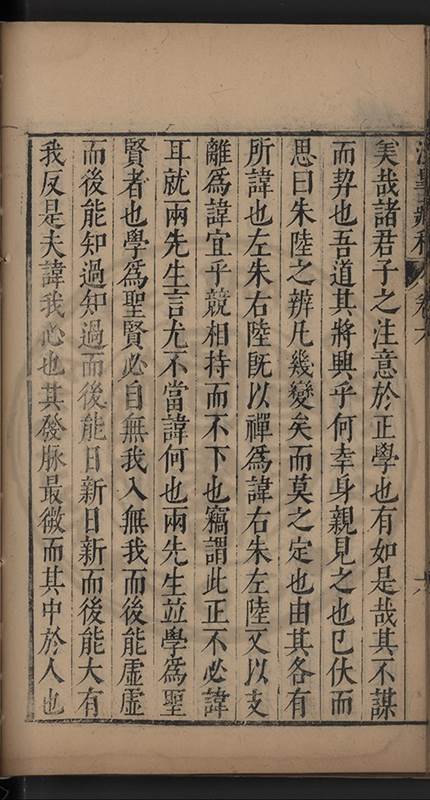 美哉諸君子之注意於正學也有如是哉其不謀
而契也吾道其將興乎何幸身親見之也已伏而
思曰朱陸之辨凡幾變矣而莫之定也由其各有
所諱也左朱右陸既以禪爲諱右朱左陸又以支
離爲諱宜乎競相持而不下也竊謂此正不必諱
耳就兩先生言尤不當諱何也兩先生並學爲聖
賢者也學爲聖賢必自無我入無我而後能虛虛
而後能知過知過而後能日新日新而後能大有
我反是夫諱我心也其發脉最微而其中於人也